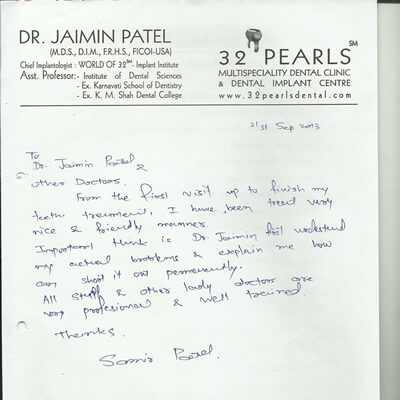 DR. JAIMIN PATEL
(M.D.S., D.I.M., F.R.H.S., FICOI-USA)
Chief Implantologist : WORLD OF 32SM- Implant Institute
Asst. Professor:- Institute of Dental Sciences
- Ex. Karnavati School of Dentistry
- Ex. K. M. Shah Dental College
32 PEARLS SM
MULTISPECIALITY DENTAL CLINIC
& DENTAL IMPLANT CENTRE
www.32pearlsdental.com
21st Sep 2013
To
Dr. Jaimin Patel &
other Doctors.
From the first visit up to finish my
teeth treatment, I have been treat very
nice & friendly manner.
Important think is Dr. Jaimin understand
my actual problems & explain me how
can short it out permanently.
All staff & other lady doctors are
very profesional & well trained.
Thanks.
Samir Patel.